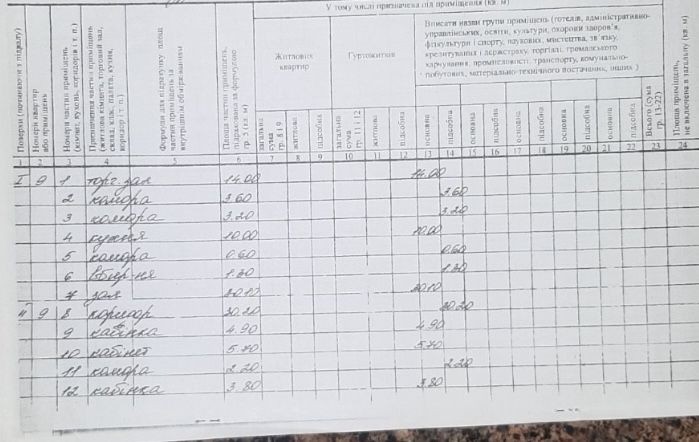 У тому числі призначена під приміщення (кв. м)
Номери (починаючи з підвалу)
Номери квартир або приміщень
Номери частин приміщень (кімнат, кухонь, коридорів і т. п.)
Призначення частин приміщень (житлова кімната, торговий зал, склад, клас, палата, кухня, коридор і т п.)
Формули для підрахунку площ частин приміщень за внутрішнім обмірюванням
Площа частин приміщень, підрахована за формулою гр. 5 (кв. м)
Житлових квартир
Гуртожитків
Вписати назви групи приміщень (готелів, адміністративно-
управлінських, освіти, культури, охорони здоров'я,
фізкультури і спорту, наукових, мистецтва, зв'язку,
кредитування і держстраху, торгівлі, громадського
харчування, промисловості, транспорту, комунально-
побутових, матеріально-технічного постачання, інших )
загальна сума гр. 8 і 9
житлова
підсобна
загальна сума гр. 11 і 12
житлова
підсобна
основна
підсобна
основна
підсобна
основна
підсобна
основна
підсобна
основна
підсобна
Всього (сума гр. 13-22)
Площа приміщень, не включена в загальну (кв. м)
1 2 3 4 5 6 7 8 9 10 11 12 13 14 15 16 17 18 19 20 21 22 23 24
I 9 1 торг. зал 14.00 14.00
2 комора 3.60 3.60
3 комора 3.20 3.20
4 кухня 10.00 10.00
5 комора 0.60 0.60
6 1.30 1.30
7 зал 20.10 20.10
II 9 8 коридор 20.20 20.20
9 кабінка 4.90 4.90
10 кабінет 5.70 5.70
11 комора 2.20 2.20
12 кабінка 3.80 3.80